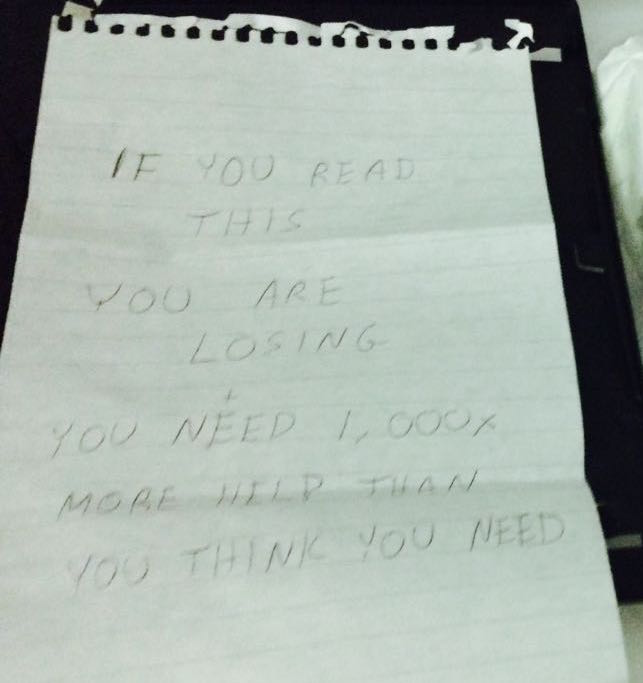 IF YOU READ
THIS
YOU ARE
LOSING
+
YOU NEED 1,000x
MORE HELP THAN
YOU THINK YOU NEED